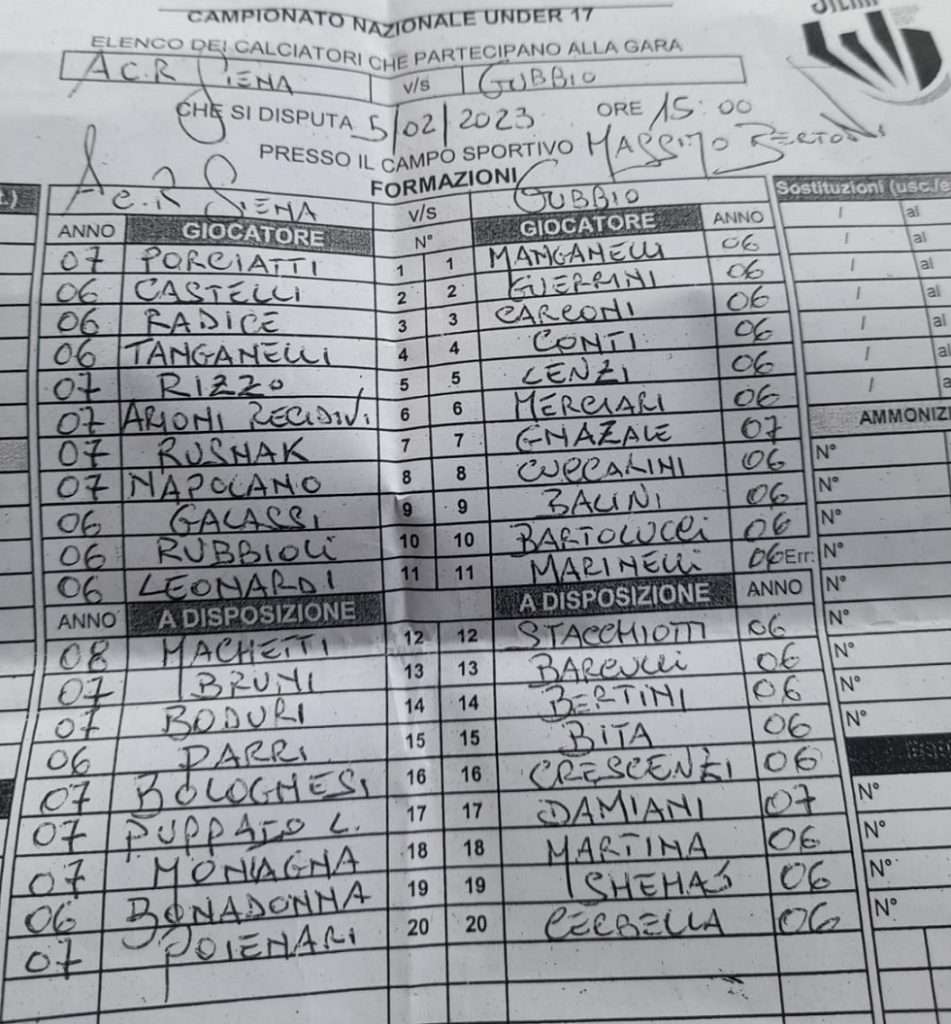 CAMPIONATO NAZIONALE UNDER 17
ELENCO DEI CALCIATORI CHE PARTECIPANO ALLA GARA
A.C.R SIENA v/s GUBBIO
CHE SI DISPUTA 5/02/2023 ORE 15:00
PRESSO IL CAMPO SPORTIVO MASSIMO BERTONI
FORMAZIONI
A.C.R SIENA v/s GUBBIO Sostituzioni (usc./
ANNO GIOCATORE N° GIOCATORE ANNO / al
07 PORCIATTI 1 1 MANGANELLI 06 / al
06 CASTELLI 2 2 GUERRINI 06 / al
06 RADICE 3 3 CARCONI 06 / al
06 TANGANELLI 4 4 CONTI 06 / al
07 RIZZO 5 5 LENZI 06 / al
07 ARIONI RECIDIVI 6 6 MERCIARI 06 / a
07 RUSNAK 7 7 GNAZALE 07 AMMONIZ
07 NAPOLANO 8 8 CUCCARINI 06 N°
06 GALASSI 9 9 BALINI 06 N°
06 RUBBIOLI 10 10 BARTOLUCCI 06 N°
06 LEONARDI 11 11 MARINELLI 06 Err. N°
ANNO A DISPOSIZIONE A DISPOSIZIONE ANNO N°
08 MACHETTI 12 12 STACCHIOTTI 06 N°
07 BRUNI 13 13 BARCULLI 06 N°
07 BODURI 14 14 BERTINI 06 N°
06 PARRI 15 15 BITA 06 N°
07 BOLOGNESI 16 16 CRESCENZI 06
07 PUPPATO L. 17 17 DAMIANI 07 N°
07 MONTAGNA 18 18 MARTINA 06 N°
06 BONADONNA 19 19 SHEMAS 06 N°
07 POIENARI 20 20 CERBELLA 06 N°